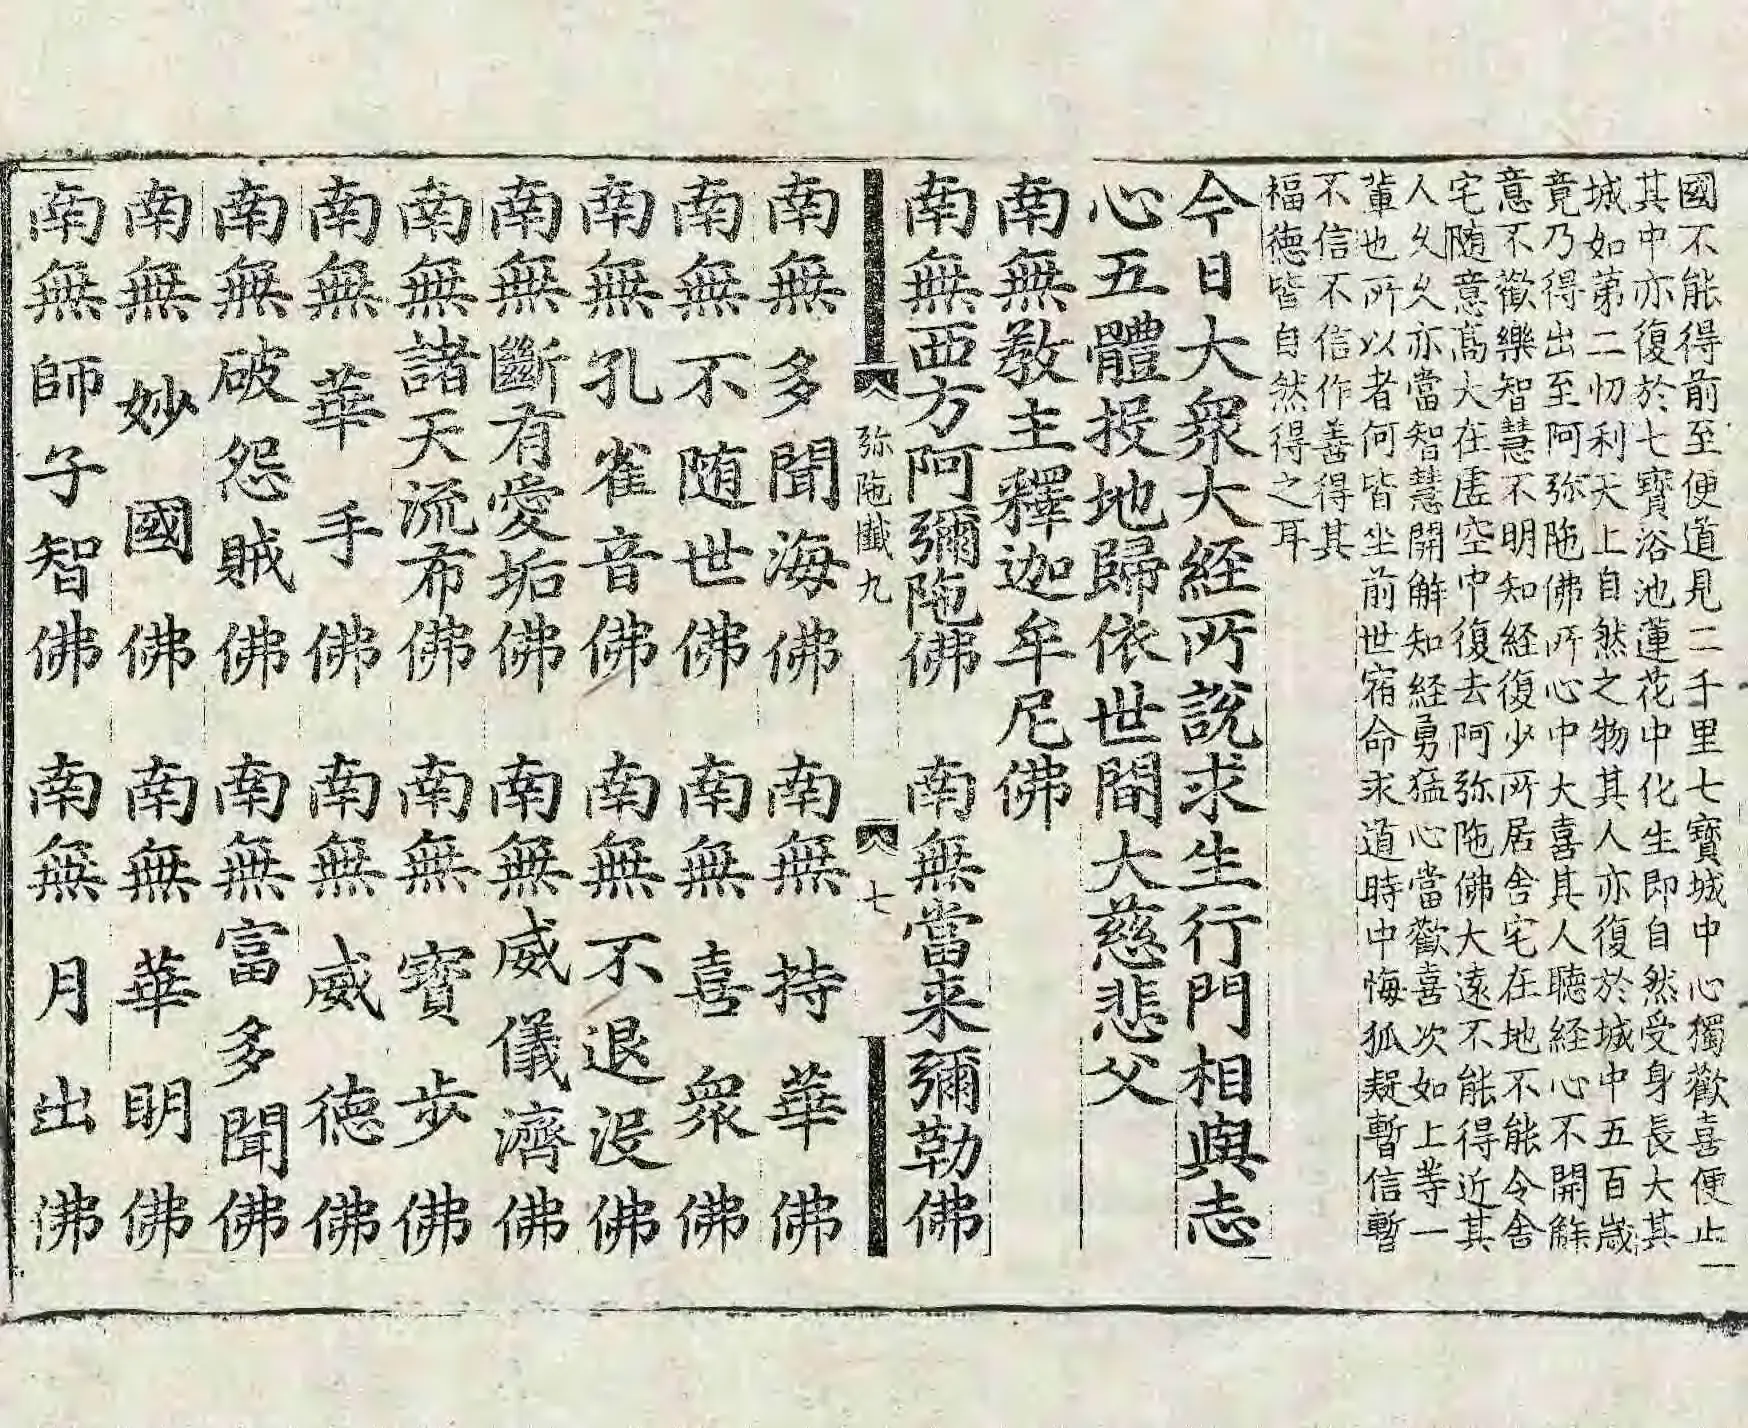 國不能得前至便道見二千里七寶城中心獨歡喜便止
其中亦復於七寶浴池蓮花中化生即自然受身長大其
城如第二忉利天上自然之物其人亦復於城中五百歲
竟乃得出至阿弥陁佛所心中大喜其人聽経心不開解
意不歡樂智慧不明知経復少所居舍宅在地不能令舍
宅随意高大在虛空中復去阿弥陁佛大遠不能得近其
人久久亦當智慧開解知経勇猛心當歡喜次如上等一
輩也所以者何皆坐前世宿命求道時中悔狐疑暫信暫
不信不信作善得其
福德皆自然得之耳
今日大衆大経所說求生行門相與志
心五體投地歸依世間大慈悲父
南無教主釋迦牟尼佛
南無西方阿彌陁佛 南無當来彌勒佛
弥陁懺九 七
南無多聞海佛 南無持華佛
南無不随世佛 南無喜衆佛
南無孔雀音佛 南無不退没佛
南無斷有愛垢佛 南無威儀濟佛
南無諸天流布佛 南無寶步佛
南無華手佛 南無威德佛
南無破怨賊佛 南無富多聞佛
南無妙國佛 南無華明佛
南無師子智佛 南無月出佛